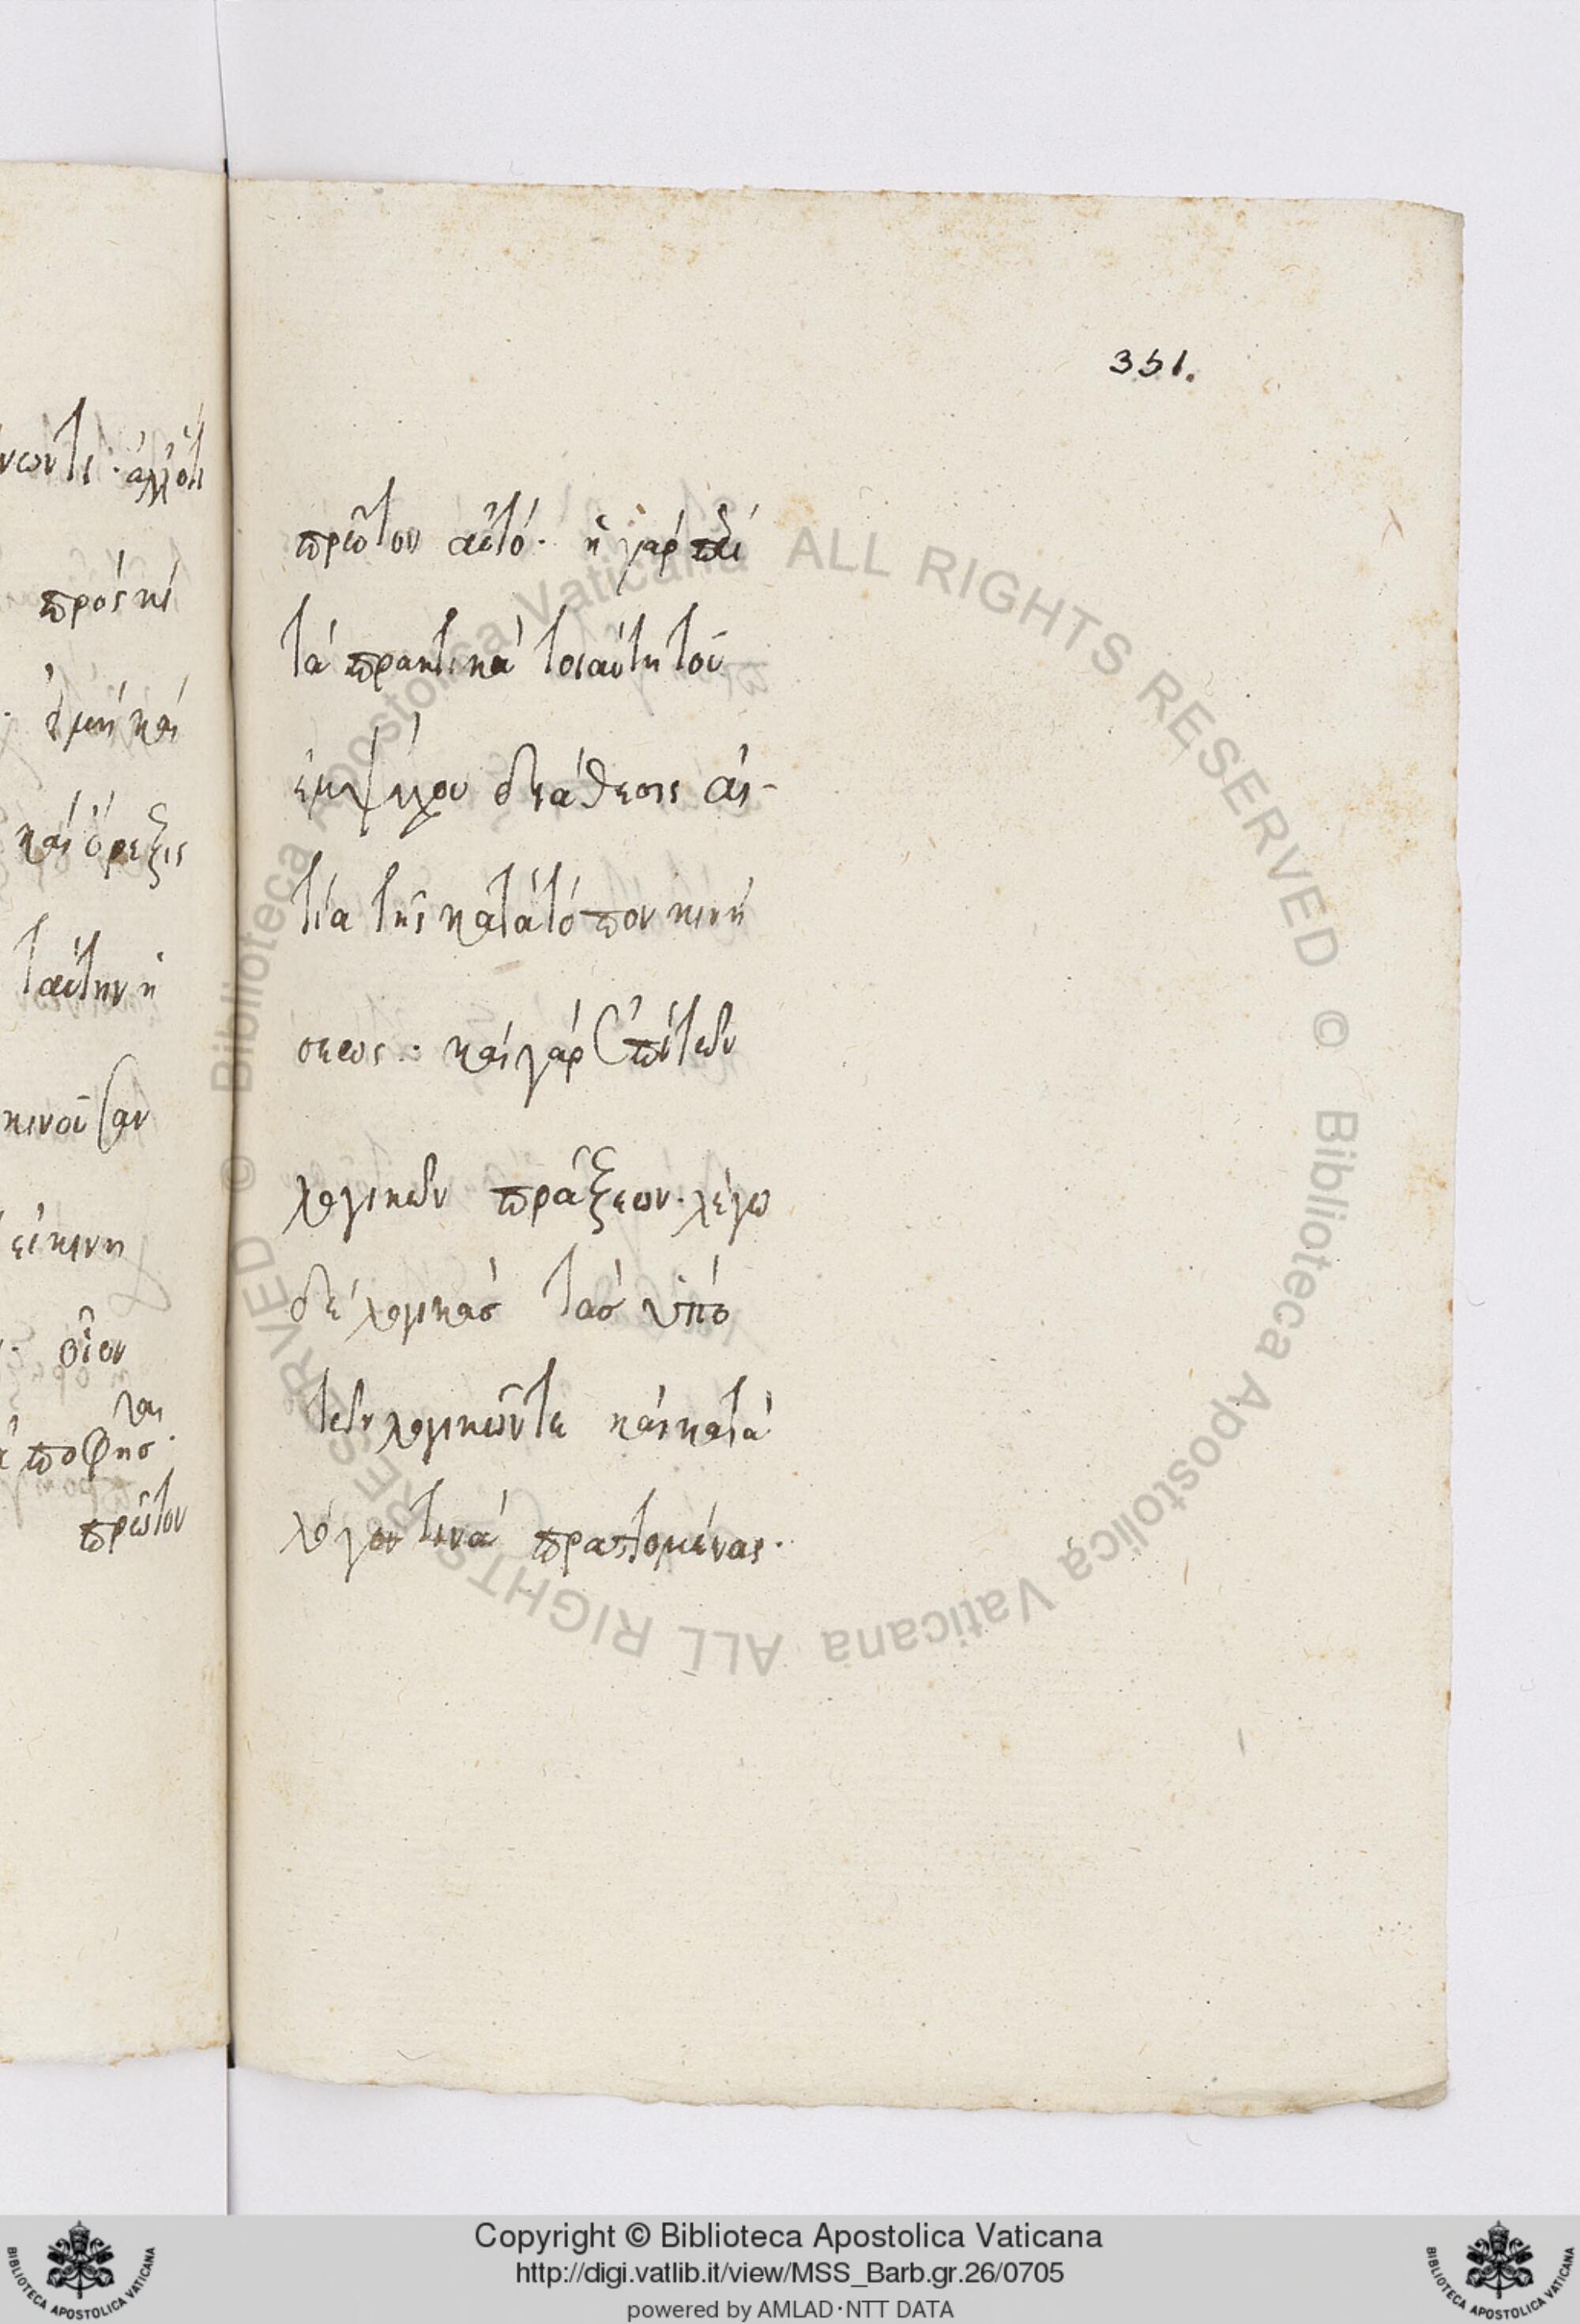 351.
πρῶτον αὐτό· ἡ γὰρ περὶ
τὰ πρακτικὰ τοιαύτη τοῦ
ἐμψύχου διάθεσις αἰ-
τία τῆς κατὰ τόπον κινή
σεως· καὶ γὰρ ἐπὶ τῶν
λογικῶν πράξεων· λέγω
δὲ λογικὰσ τὰσ ὑπὸ
τῶν λογικῶντε καὶ κατὰ
λόγον τινὰ πραττομένας·
ἀλλ' ὅτι
πρός κι
ὁρμὴ καὶ
καὶ ὄρεξις
ταύτην ἡ
κινοῦσαν
εἰ κινη
οἷον
πρῶτον
Copyright © Biblioteca Apostolica Vaticana
http://digi.vatlib.it/view/MSS_Barb.gr.26/0705
powered by AMLAD·NTT DATA
BIBLIOTECA APOSTOLICA VATICANA
BIBLIOTECA APOSTOLICA VATICANA
© Biblioteca Apostolica Vaticana ALL RIGHTS RESERVED © Biblioteca Apostolica Vaticana ALL RIGHTS RESERVED